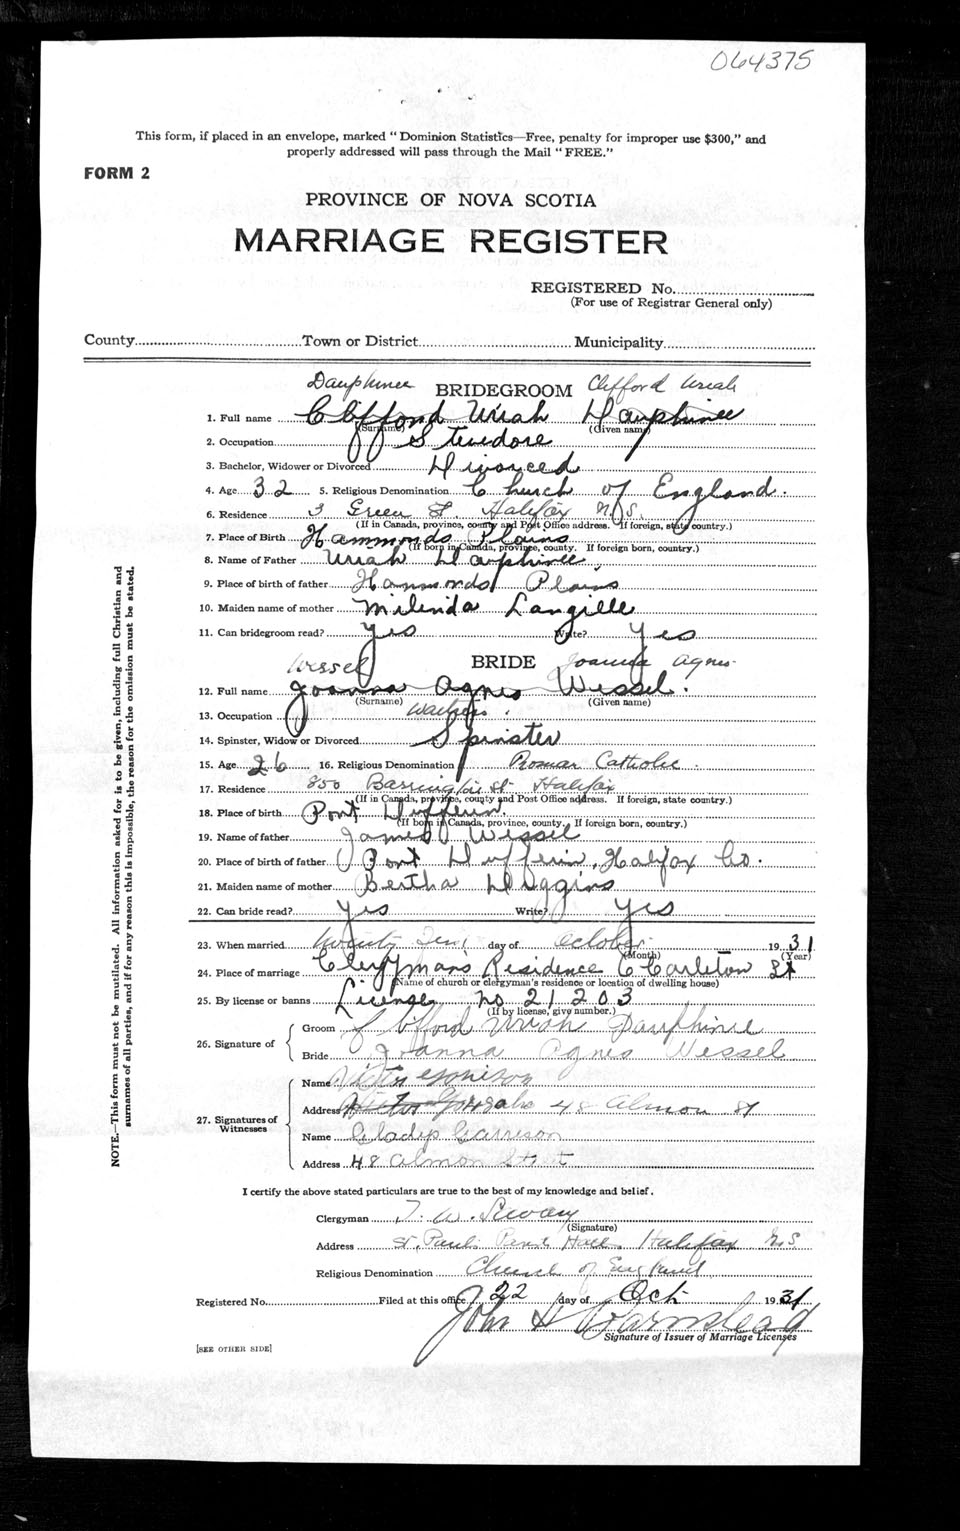 064375
This form, if placed in an envelope, marked "Dominion Statistics—Free, penalty for improper use $300," and
properly addressed will pass through the Mail "FREE."
FORM 2
PROVINCE OF NOVA SCOTIA
MARRIAGE REGISTER
REGISTERED No.
(For use of Registrar General only)
County Town or District Municipality
Dauphinee BRIDEGROOM Clifford Uriah
1. Full name Clifford Uriah Dauphinee
(Surname) (Given name)
2. Occupation Stevedore
3. Bachelor, Widower or Divorced Divorced
4. Age 32 5. Religious Denomination Church of England.
6. Residence 3 Green St. Halifax N.S.
(If in Canada, province, county and Post Office address. If foreign, state country.)
7. Place of Birth Hammonds Plains
(If born in Canada, province, county. If foreign born, country.)
8. Name of Father Uriah Dauphinee
9. Place of birth of father Hammonds Plains
10. Maiden name of mother Milinda Langille
11. Can bridegroom read? yes Write? Yes
Wessel BRIDE Joanna Agnes
12. Full name Joanna Agnes Wessel.
(Surname) (Given name)
13. Occupation Waitress.
14. Spinster, Widow or Divorced Spinster
15. Age 26 16. Religious Denomination Roman Catholic.
17. Residence 850 Barrington St Halifax
(If in Canada, province, county and Post Office address. If foreign, state country.)
18. Place of birth Port Dufferin
(If born in Canada, province, county. If foreign born, country.)
19. Name of father James Wessel
20. Place of birth of father Port Dufferin, Halifax Co.
21. Maiden name of mother Bertha Diggins
22. Can bride read? yes Write? yes
23. When married twenty day of October 1931
(Month) (Year)
24. Place of marriage Clergyman's Residence Carleton St
(Name of church or clergyman's residence or location of dwelling house)
25. By license or banns License no 21203
(If by license, give number.)
26. Signature of
Groom Clifford Uriah Dauphinee
Bride Joanna Agnes Wessel
27. Signatures of Witnesses
Name Victor
Address 48 Almon St
Name Gladys Garrison
Address 48 Almon Street
I certify the above stated particulars are true to the best of my knowledge and belief.
Clergyman T. W.
(Signature)
Address St. Paul's Hall, Halifax N.S.
Religious Denomination Church of England
Registered No. Filed at this office 22 day of Oct 1931
John H
Signature of Issuer of Marriage Licenses
[SEE OTHER SIDE]
NOTE.—This form must not be mutilated. All information asked for is to be given, including full Christian and
surnames of all parties, and if for any reason this is impossible, the reason for the omission must be stated.